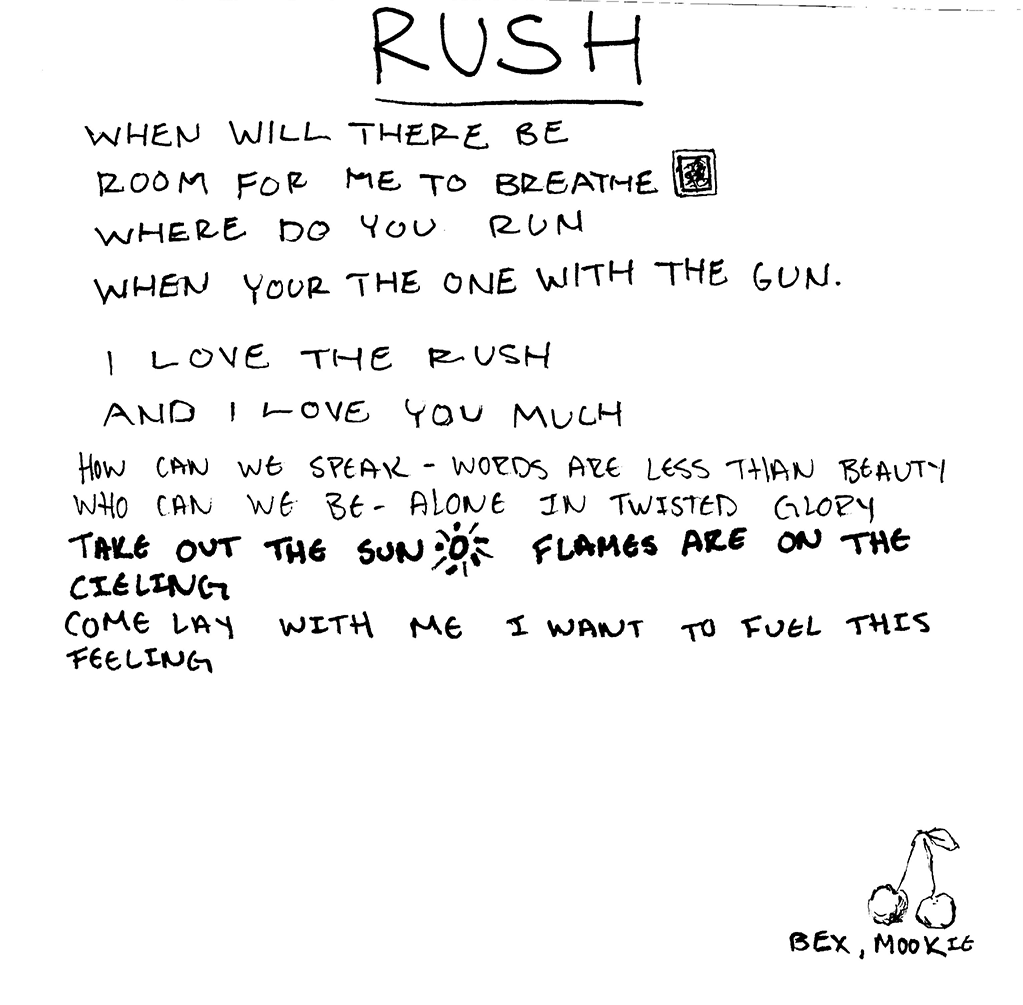 RUSH
WHEN WILL THERE BE
ROOM FOR ME TO BREATHE
WHERE DO YOU RUN
WHEN YOUR THE ONE WITH THE GUN.
I LOVE THE RUSH
AND I LOVE YOU MUCH
HOW CAN WE SPEAK - WORDS ARE LESS THAN BEAUTY
WHO CAN WE BE - ALONE IN TWISTED GLORY
TAKE OUT THE SUN FLAMES ARE ON THE
CIELING
COME LAY WITH ME I WANT TO FUEL THIS
FEELING
BEX, MOOKIE